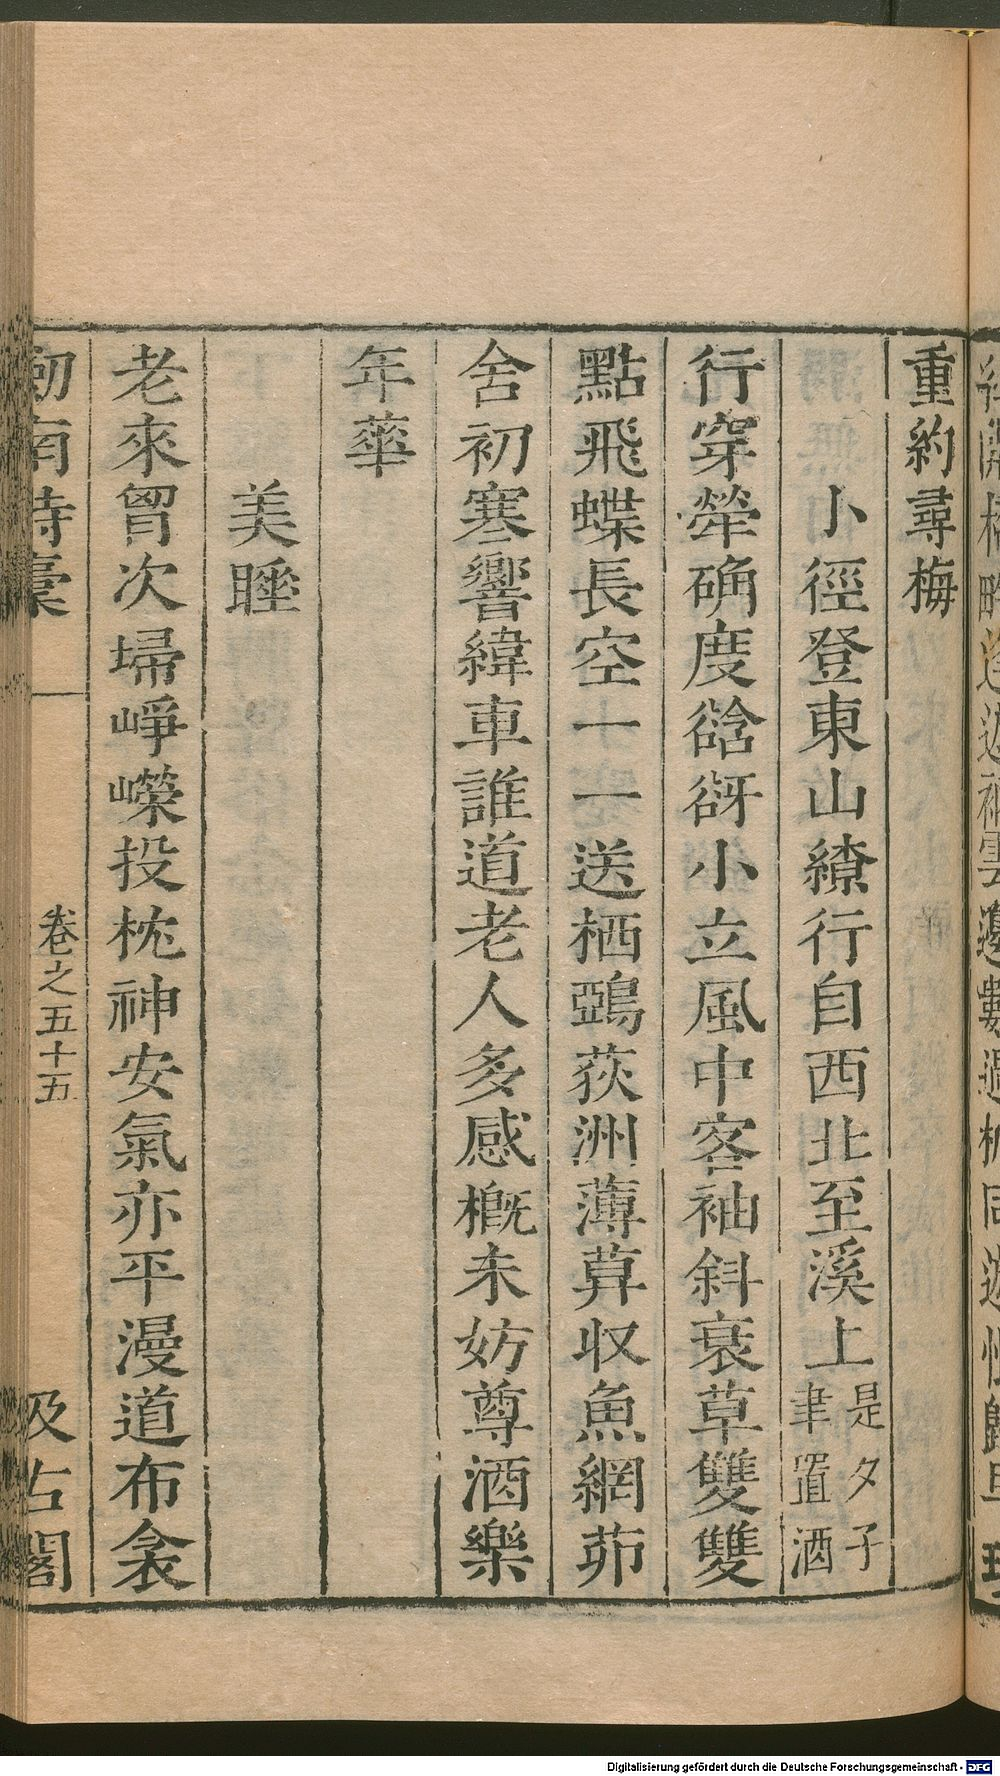 重約尋梅
小徑登東山繚行自西北至溪上是夕子聿置酒
行穿犖确度谽谺小立風中客袖斜衰草雙雙
點飛蝶長空一一送栖鵶荻洲薄暮收魚網茆
舍初寒響緯車誰道老人多感槪未妨尊酒樂
年華
美睡
老來胷次埽崢嶸投枕神安氣亦平漫道布衾
劒南詩稾
卷之五十五
汲古閣
Digitalisierung gefördert durch die Deutsche Forschungsgemeinschaft - DFG